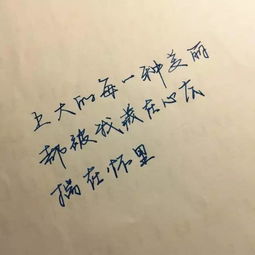 五大的每一种美丽
都被我藏在心底
揣在怀里